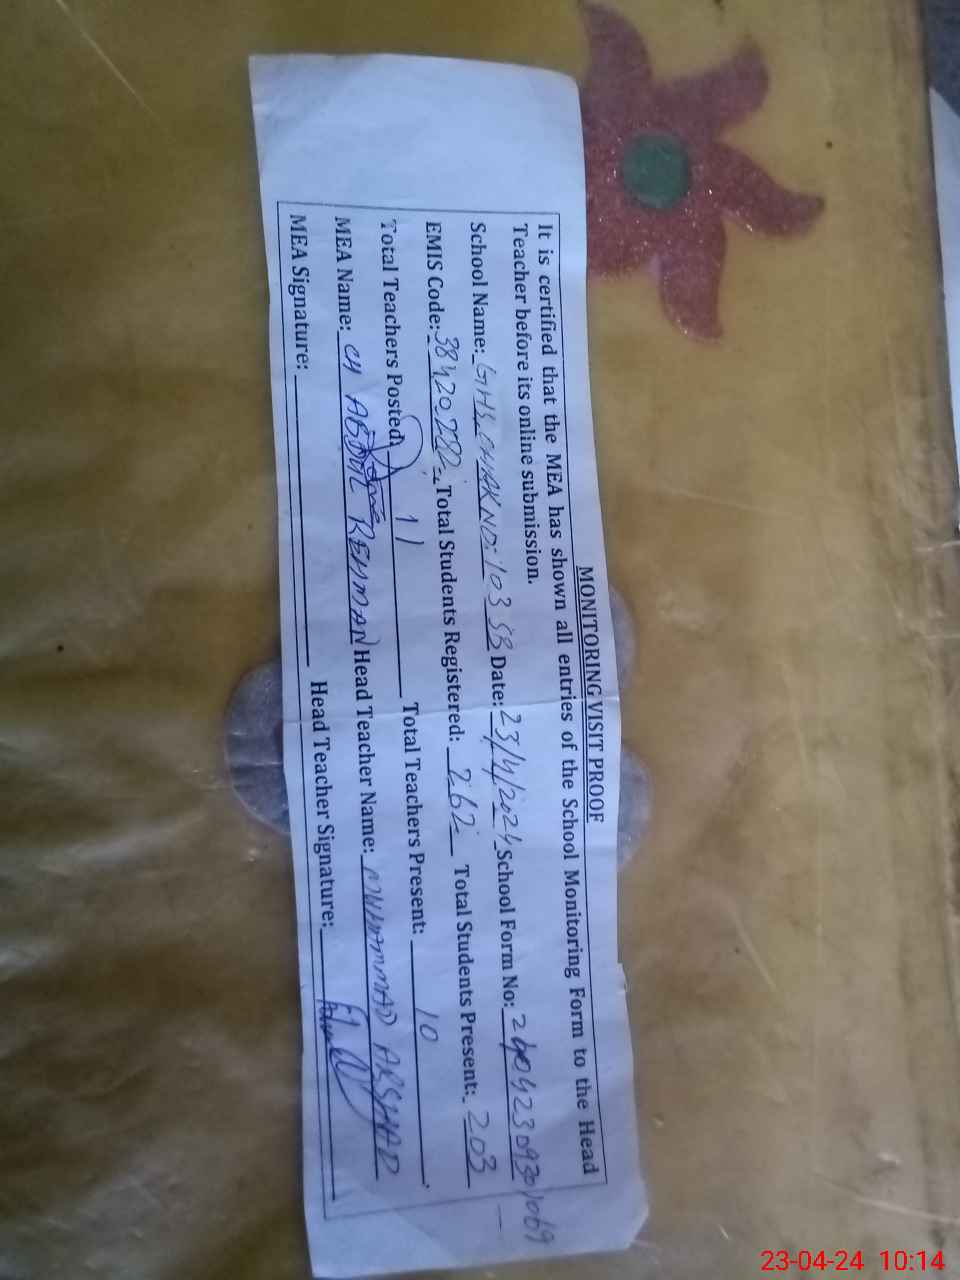 MONITORING VISIT PROOF
It is certified that the MEA has shown all entries of the School Monitoring Form to the Head
Teacher before its online submission.
School Name: GHS CHAK NO: 103 SB Date: 23/4/2024 School Form No:
EMIS Code: 38420282 Total Students Registered: 262 Total Students Present: 203
Total Teachers Posted: 11 Total Teachers Present: 10
MEA Name: CH ABDUL REHMAN Head Teacher Name: MUHAMMAD ARSHAD
MEA Signature: Head Teacher Signature:
23-04-24 10:14